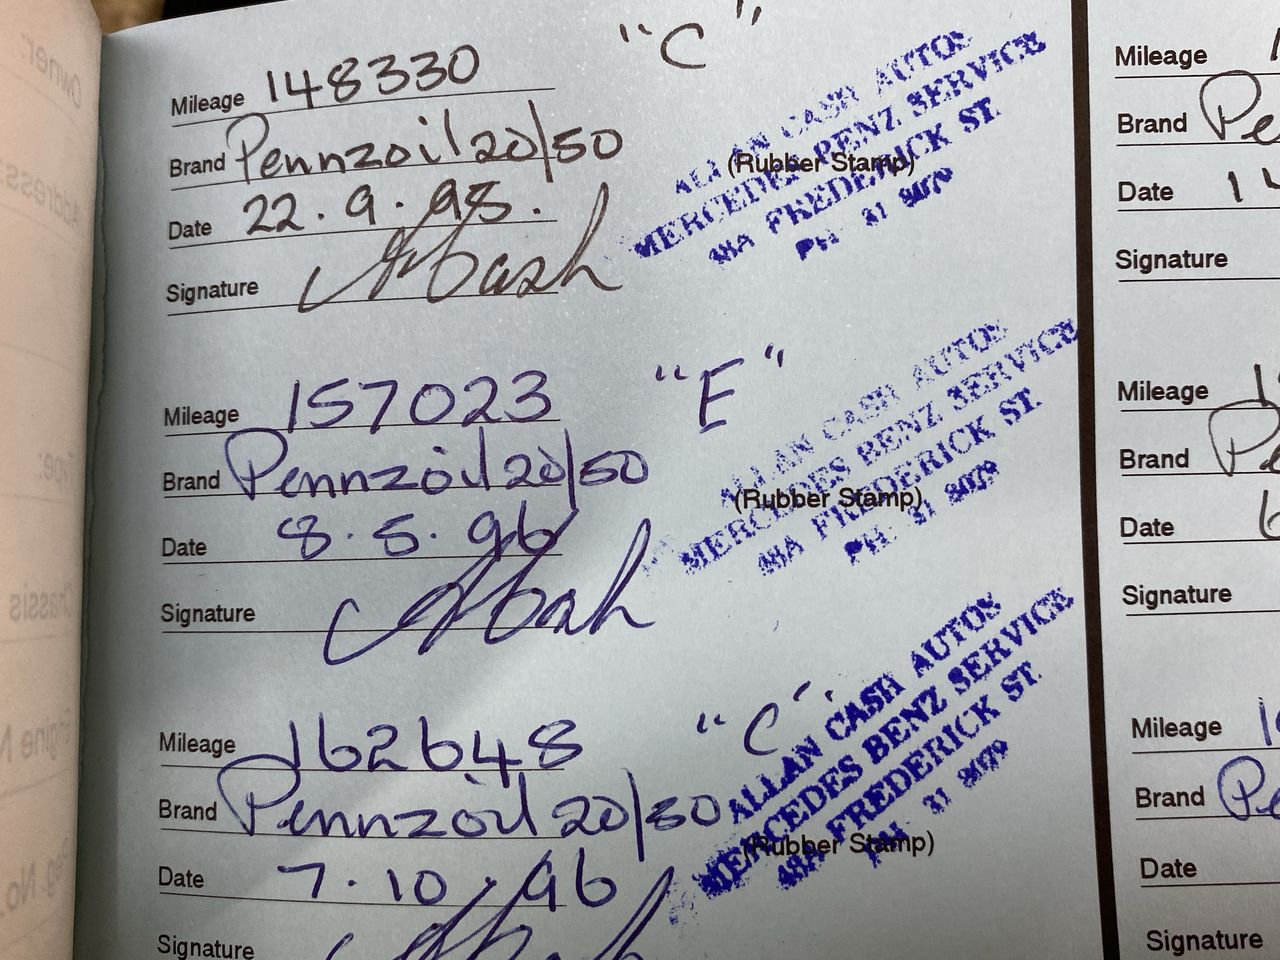 Mileage 148330 "C"
Brand Pennzoil 20/50
Date 22.9.95.
Signature
ALLAN CASH AUTOS
MERCEDES BENZ SERVICE
48A FREDERICK ST.
PH 31 8079
(Rubber Stamp)
Mileage 157023 "E"
Brand Pennzoil 20/50
Date 8.5.96
Signature
ALLAN CASH AUTOS
MERCEDES BENZ SERVICE
48A FREDERICK ST.
PH 31 8079
(Rubber Stamp)
Mileage 162648 "C"
Brand Pennzoil 20/50
Date 7.10.96
Signature
ALLAN CASH AUTOS
MERCEDES BENZ SERVICE
48A FREDERICK ST.
PH 31 8079
(Rubber Stamp)
Mileage
Brand Pe
Date 14
Signature
Mileage
Brand Pe
Date 6
Signature
Mileage
Brand Pe
Date
Signature